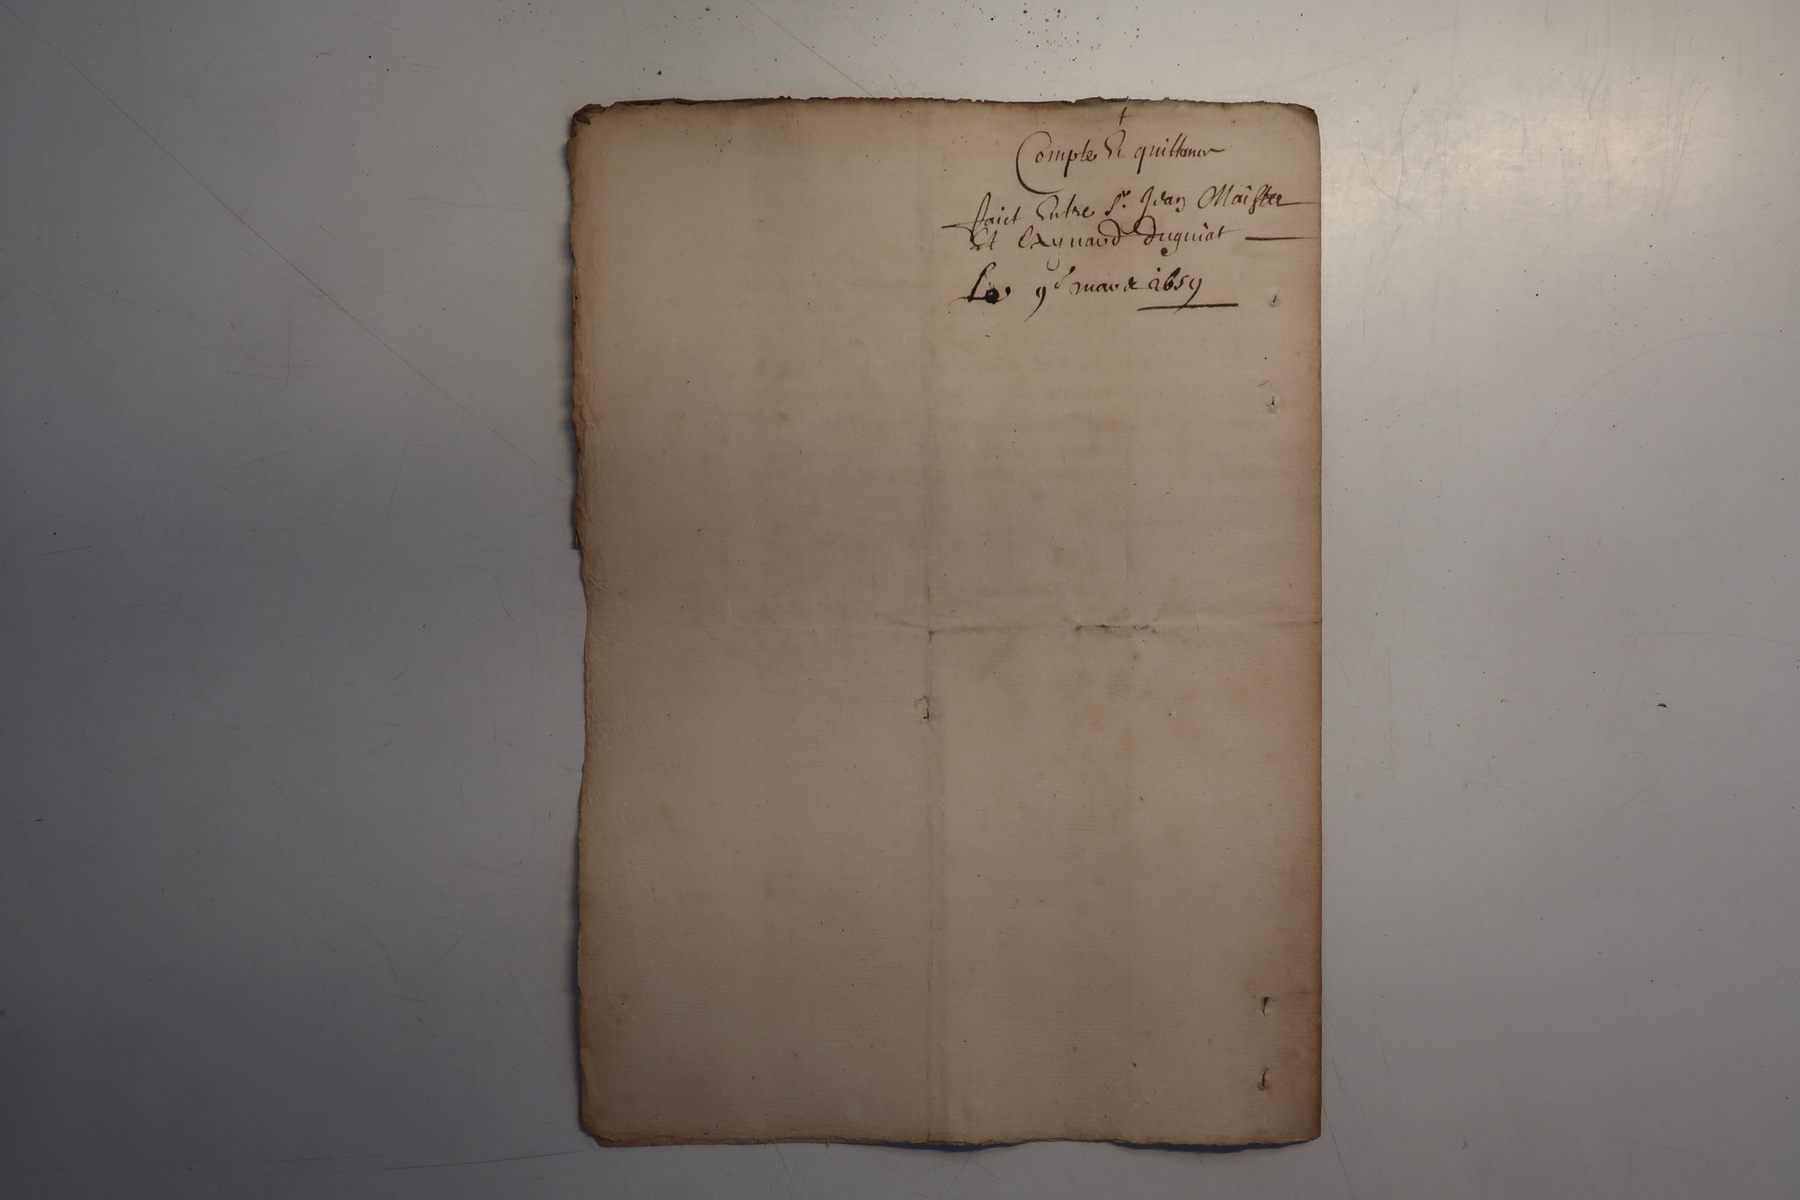 †
Compte Et quittance
faict Entre Sr. Jean Maistre
Et Eynard duguiat
Le 9e mars 1659